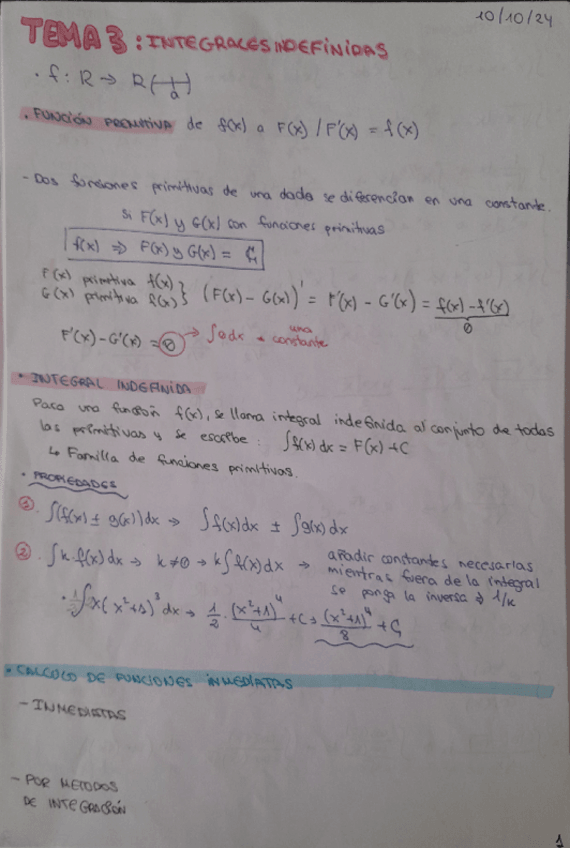 10/10/24
TEMA 3: INTEGRALES INDEFINIDAS
· f: R → R
a
· FUNCIÓN PRIMITIVA de f(x) a F(x) / F'(x) = f(x)
- Dos funciones primitivas de una dada se diferencian en una constante.
Si F(x) y G(x) son funciones primitivas
f(x) ⇒ F(x) y G(x) = C
F(x) primitiva f(x)
G(x) primitiva f(x) } (F(x) - G(x))' = F'(x) - G'(x) = f(x) - f'(x)
0
F'(x) - G'(x) = 0 → ∫0dx = una constante
· INTEGRAL INDEFINIDA
Para una función f(x), se llama integral indefinida al conjunto de todas
las primitivas y se escribe: ∫f(x)dx = F(x) + C
↳ Familia de funciones primitivas.
· PROPIEDADES
① · ∫(f(x) ± g(x))dx → ∫f(x)dx ± ∫g(x)dx
② · ∫k·f(x)dx → k≠0 → k∫f(x)dx → añadir constantes necesarias
mientras fuera de la integral
se ponga la inversa → 1/k
· 1/2 ∫x(x²+1)³dx → 1/2 · (x²+1)⁴/4 + C → (x²+1)⁴/8 + C
· CALCULO DE FUNCIONES INMEDIATAS
- INMEDIATAS
- POR METODOS
DE INTEGRACIÓN
1